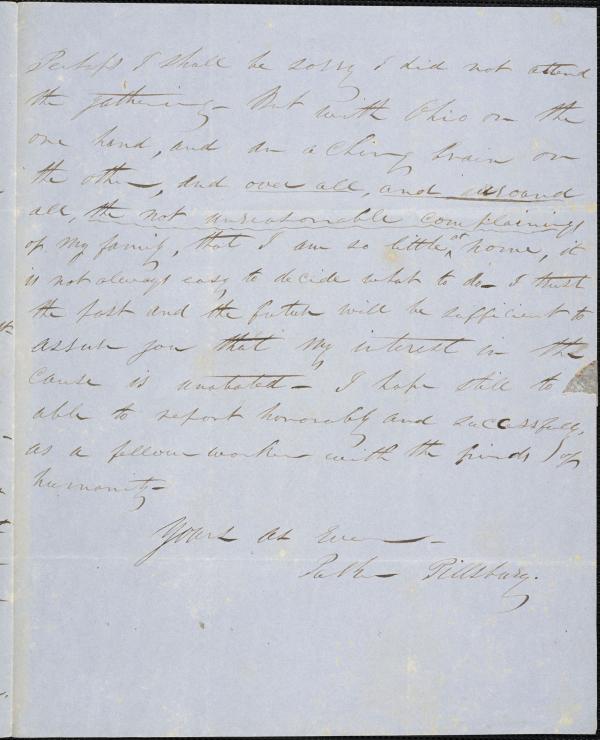 Perhaps I shall be sorry I did not attend
the gathering— But with Ohio on the
one hand, and an aching brain on
the other, and over all, and around
all, the not unreasonable complainings
of my family, that I am so little at home, it
is not always easy to decide what to do— I trust
the past and the future will be sufficient to
assure you that my interest in the
cause is unabated— I hope still to
able to report honorably and successfully,
as a fellow worker with the friends of
humanity—
Yours as Ever—
Parker Pillsbury.